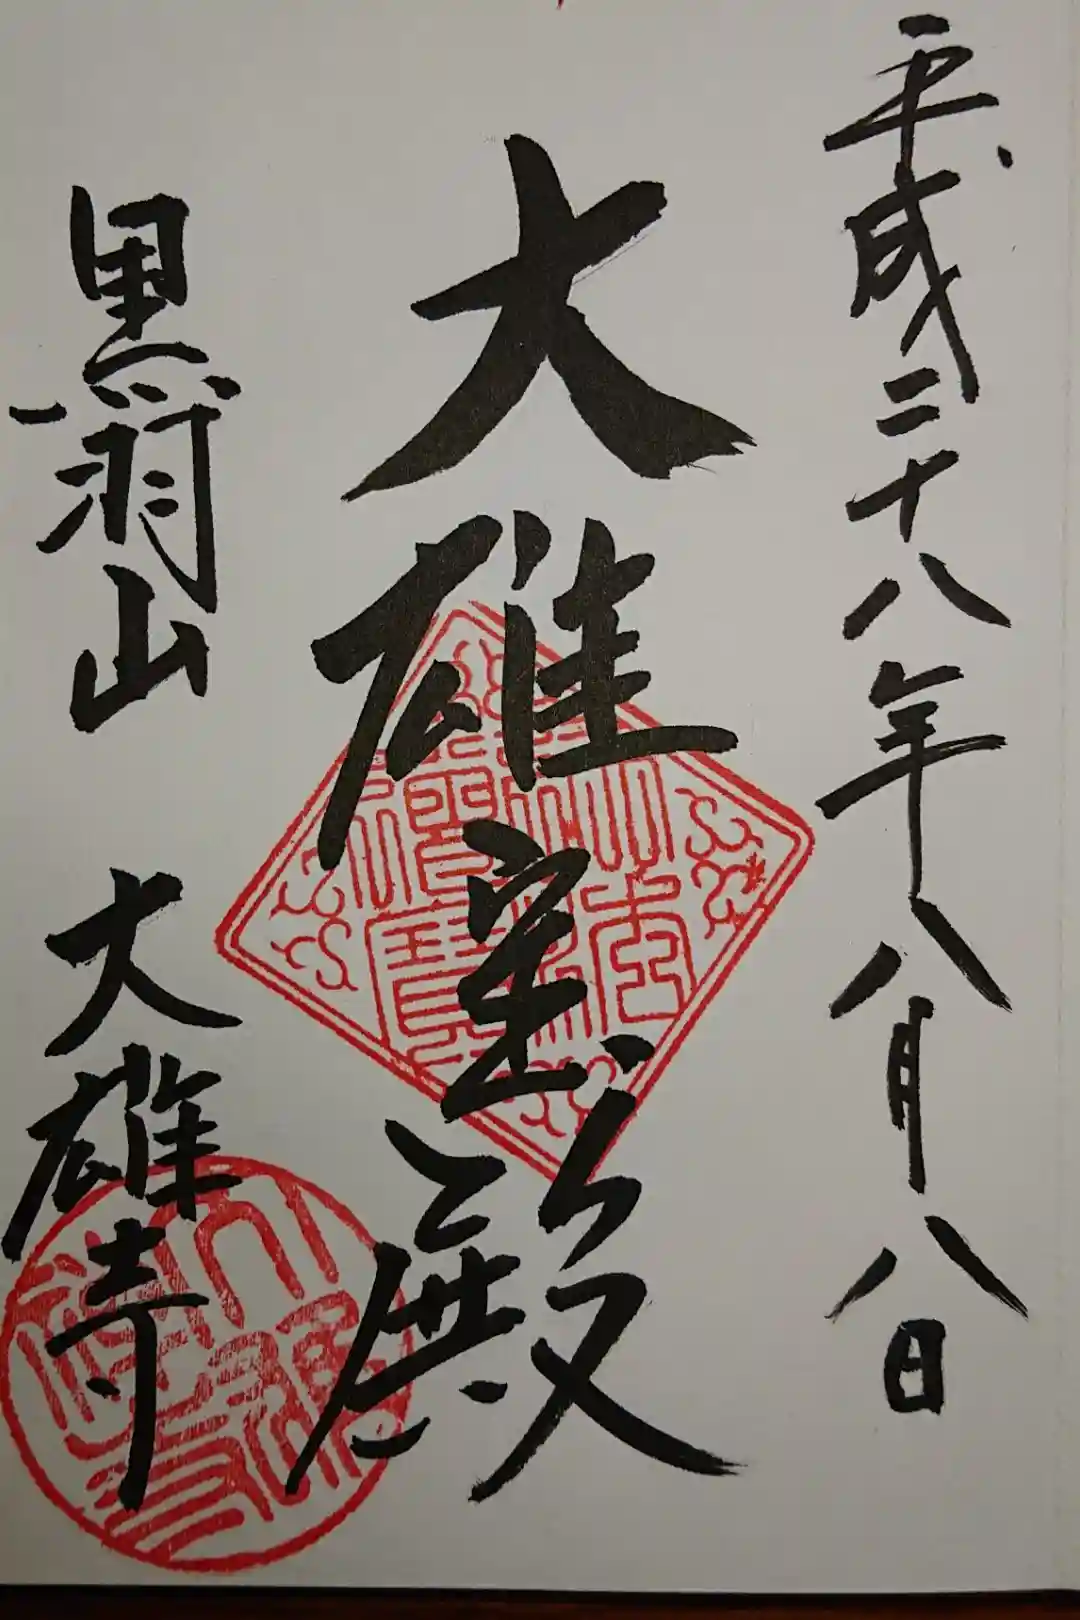 平成二十八年八月八日
大雄宝殿
黒羽山 大雄寺